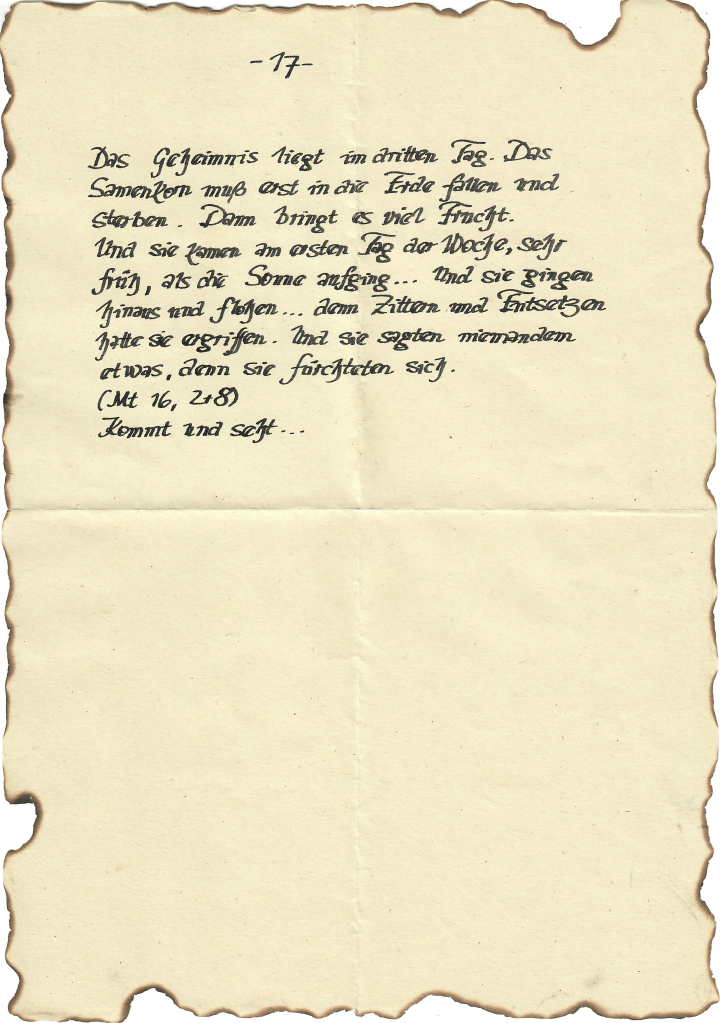 -17-
Das Geheimnis liegt im dritten Tag. Das
Samenkorn muß erst in die Erde fallen und
sterben. Dann bringt es viel Frucht.
Und sie kamen am ersten Tag der Woche, sehr
früh, als die Sonne aufging... Und sie gingen
hinaus und flohen... denn Zittern und Entsetzen
hatte sie ergriffen. Und sie sagten niemandem
etwas, denn sie fürchteten sich.
(Mt 16, 2+8)
Kommt und seht...